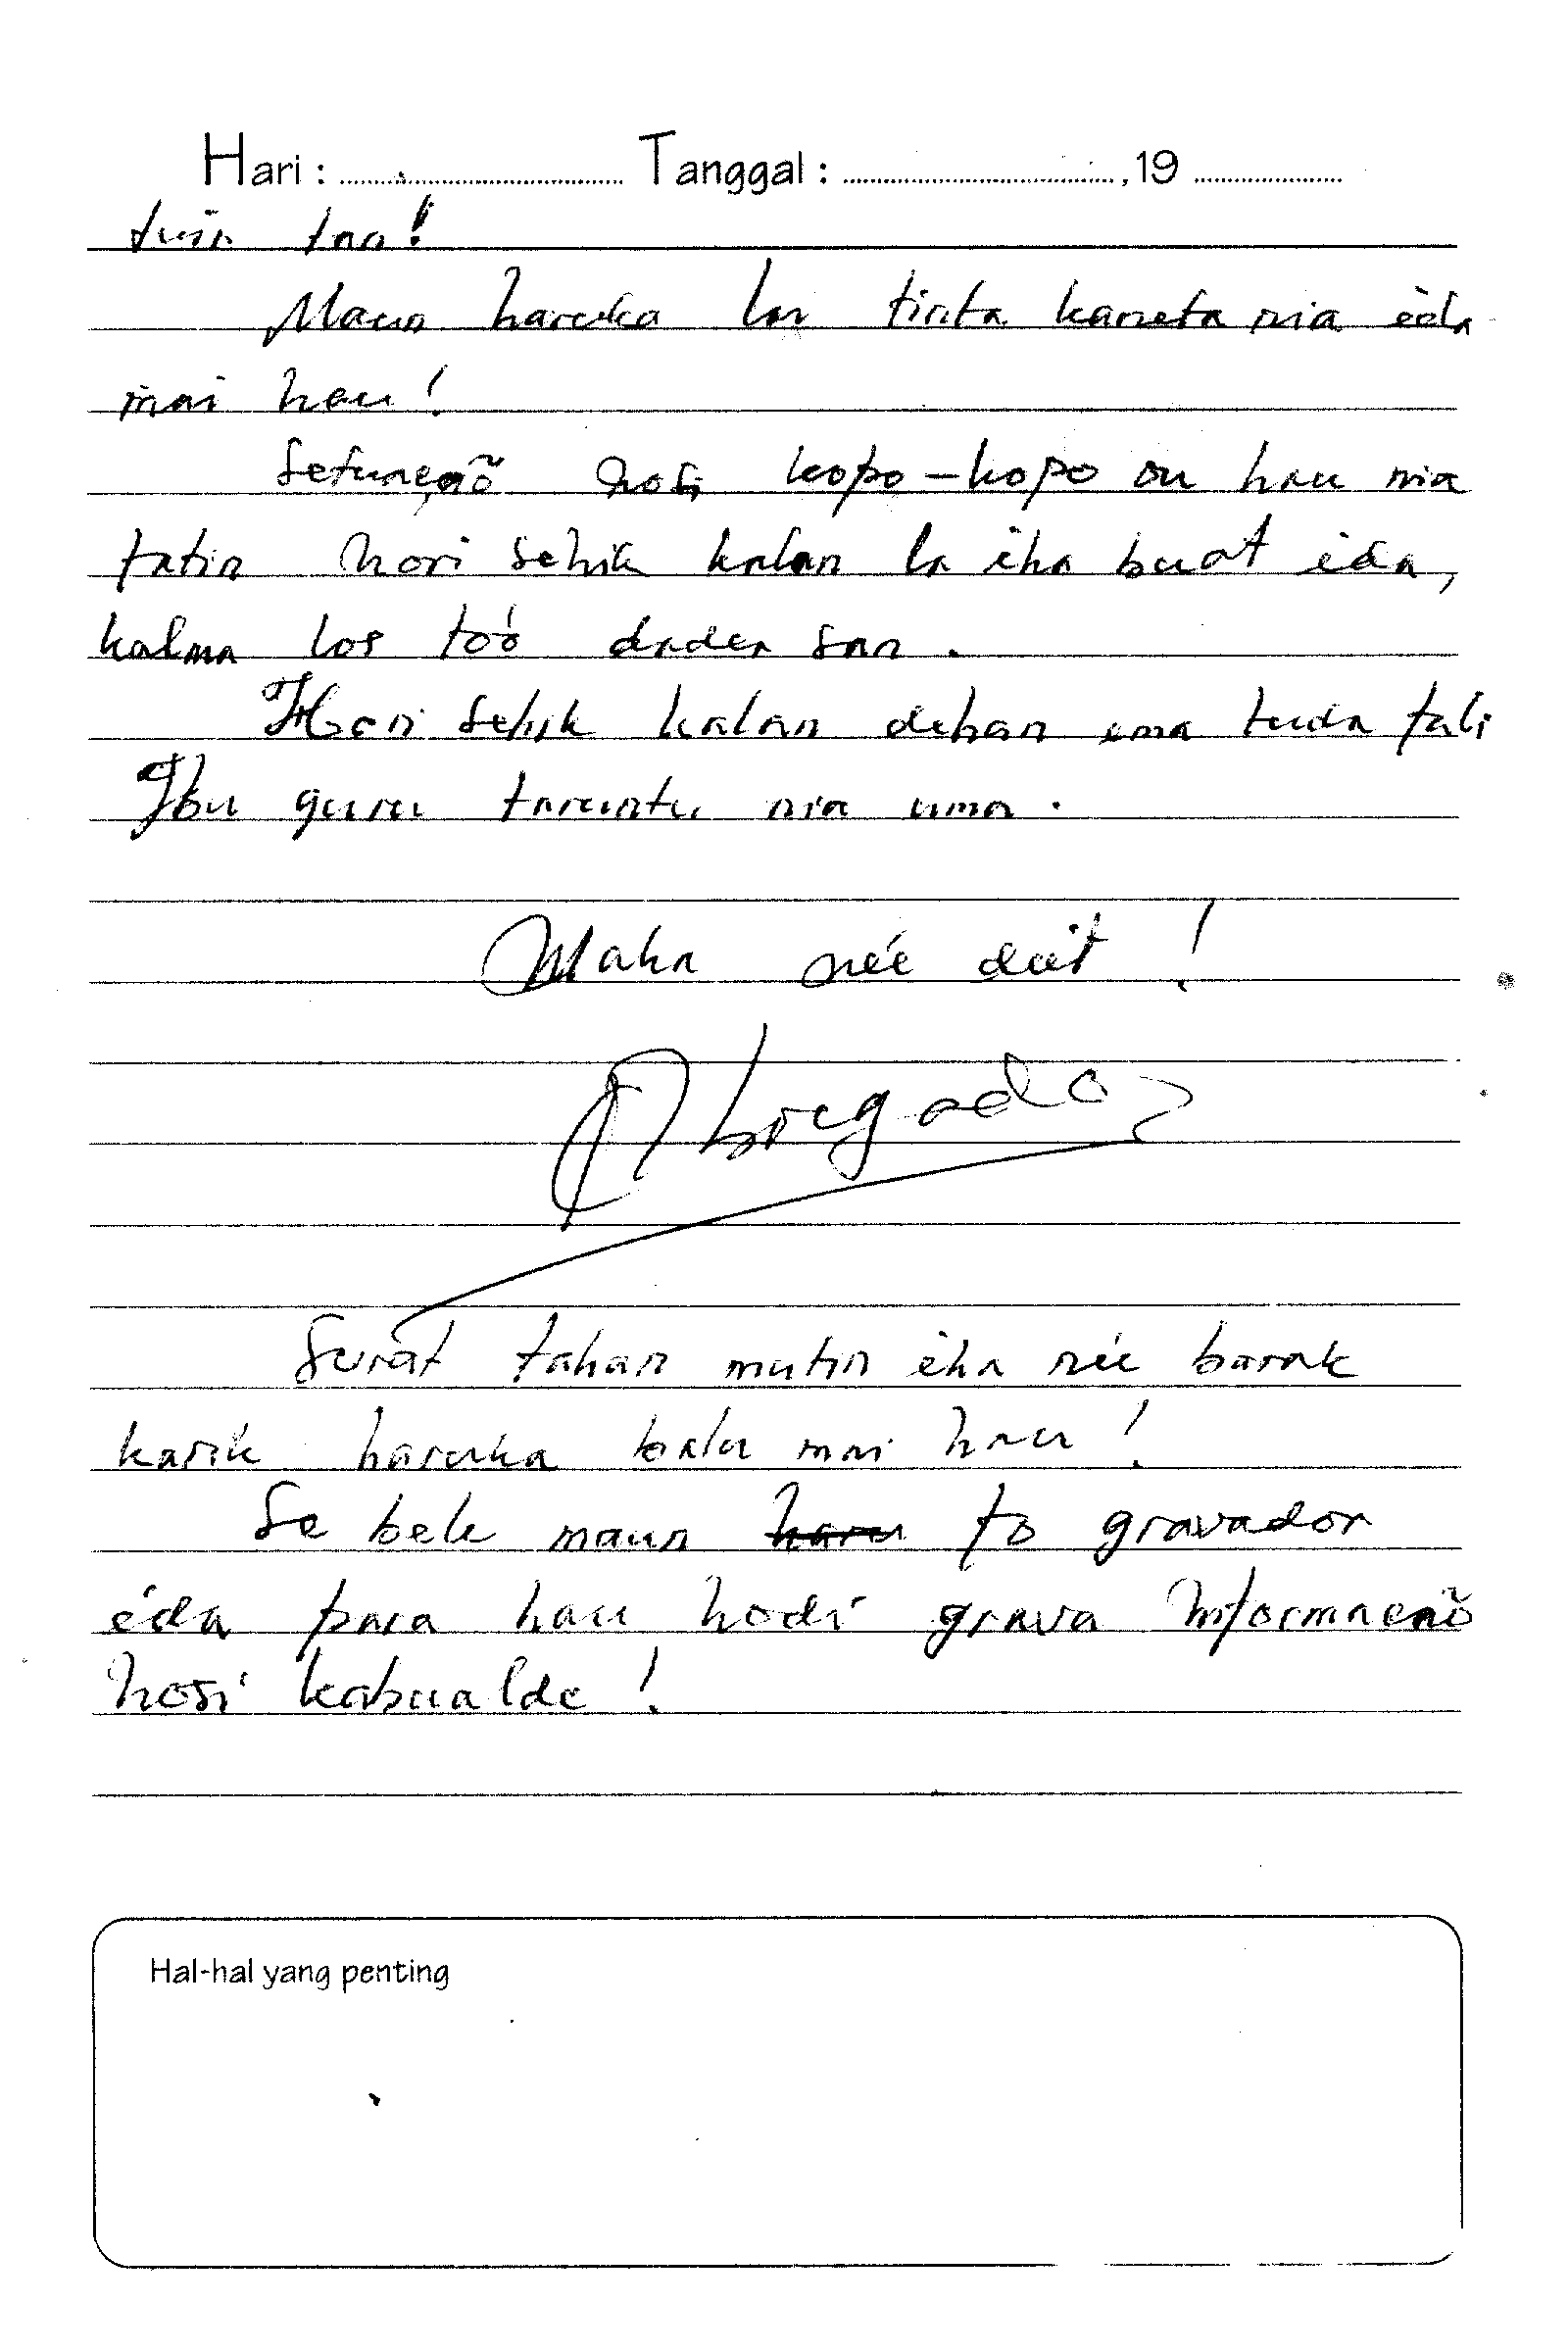 Hari : .......... Tanggal : .......... , 19 ..........
tuir tan!
Maun haruka lai tinta kaneta nia èda
mai hau!
Setuação hosi kopo-kopo ou hau nia
fatin hori sehik kalan la iha buat ida,
kalma los too dader san.
Hori sehik kalan dehan ema tuda tali
Ibu guru taruntu nia uma.
Maka née deit!
Obregado
Surat tahan mutin iha née barak
karik haruka balu mai hau!
Se bele maun haru to gravador
éda para hau hodi grava Informacaõ
hosi kabualde!
Hal-hal yang penting